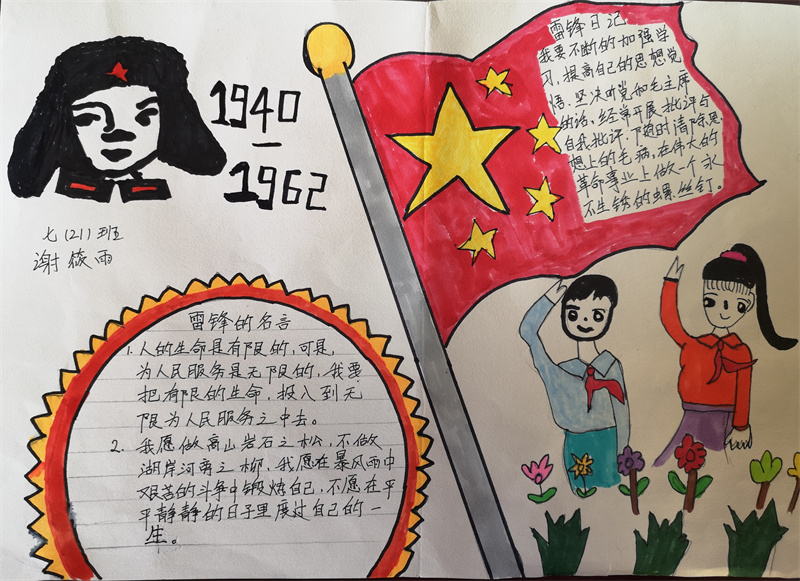 1940
—
1962
七(21)班
谢筱雨
雷锋日记
我要不断的加强学
习,提高自己的思想觉
悟,坚决听党和毛主席
的话,经常开展批评与
自我批评,随时清除思
想上的毛病,在伟大的
革命事业上做一个永
不生锈的螺丝钉。
雷锋的名言
1.人的生命是有限的,可是,
为人民服务是无限的,我要
把有限的生命,投入到无
限为人民服务之中去。
2. 我愿做高山岩石之松,不做
湖岸河旁之柳,我愿在暴风雨中
艰苦的斗争中锻炼自己,不愿在平
平静静的日子里度过自己的一
生。